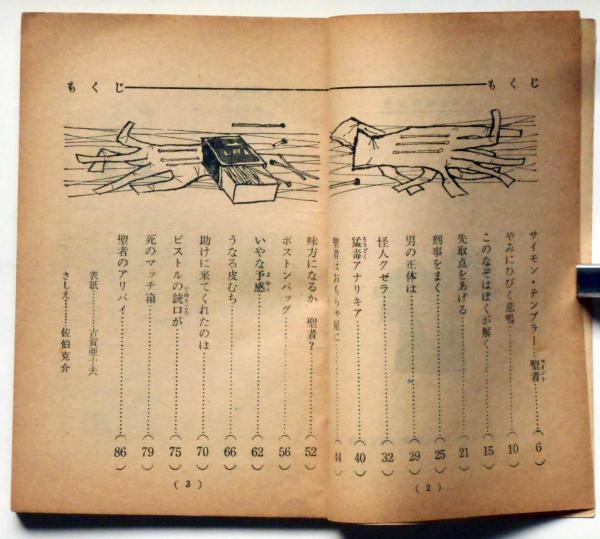 もくじ
サイモン・テンプラー…聖者（セイント）……(6)
やみにひびく悲鳴……(10)
このなぞはぼくが解く……(15)
先取点をあげる……(21)
刑事をまく……(25)
男の正体は……(29)
怪人クゼラ……(32)
猛毒（もうどく）アナリキア……(40)
聖者はおもちゃ屋に……(44)
(2)
もくじ
味方になるか 聖者？……(52)
ボストンバッグ……(56)
いやな予感（よかん）……(62)
うなる皮むち……(66)
助けに来てくれたのは……(70)
ピストルの銃口（じゅうこう）が……(75)
死のマッチ箱……(79)
聖者のアリバイ……(86)
表紙……古賀亜十夫
さしえ……佐伯克介
(3)